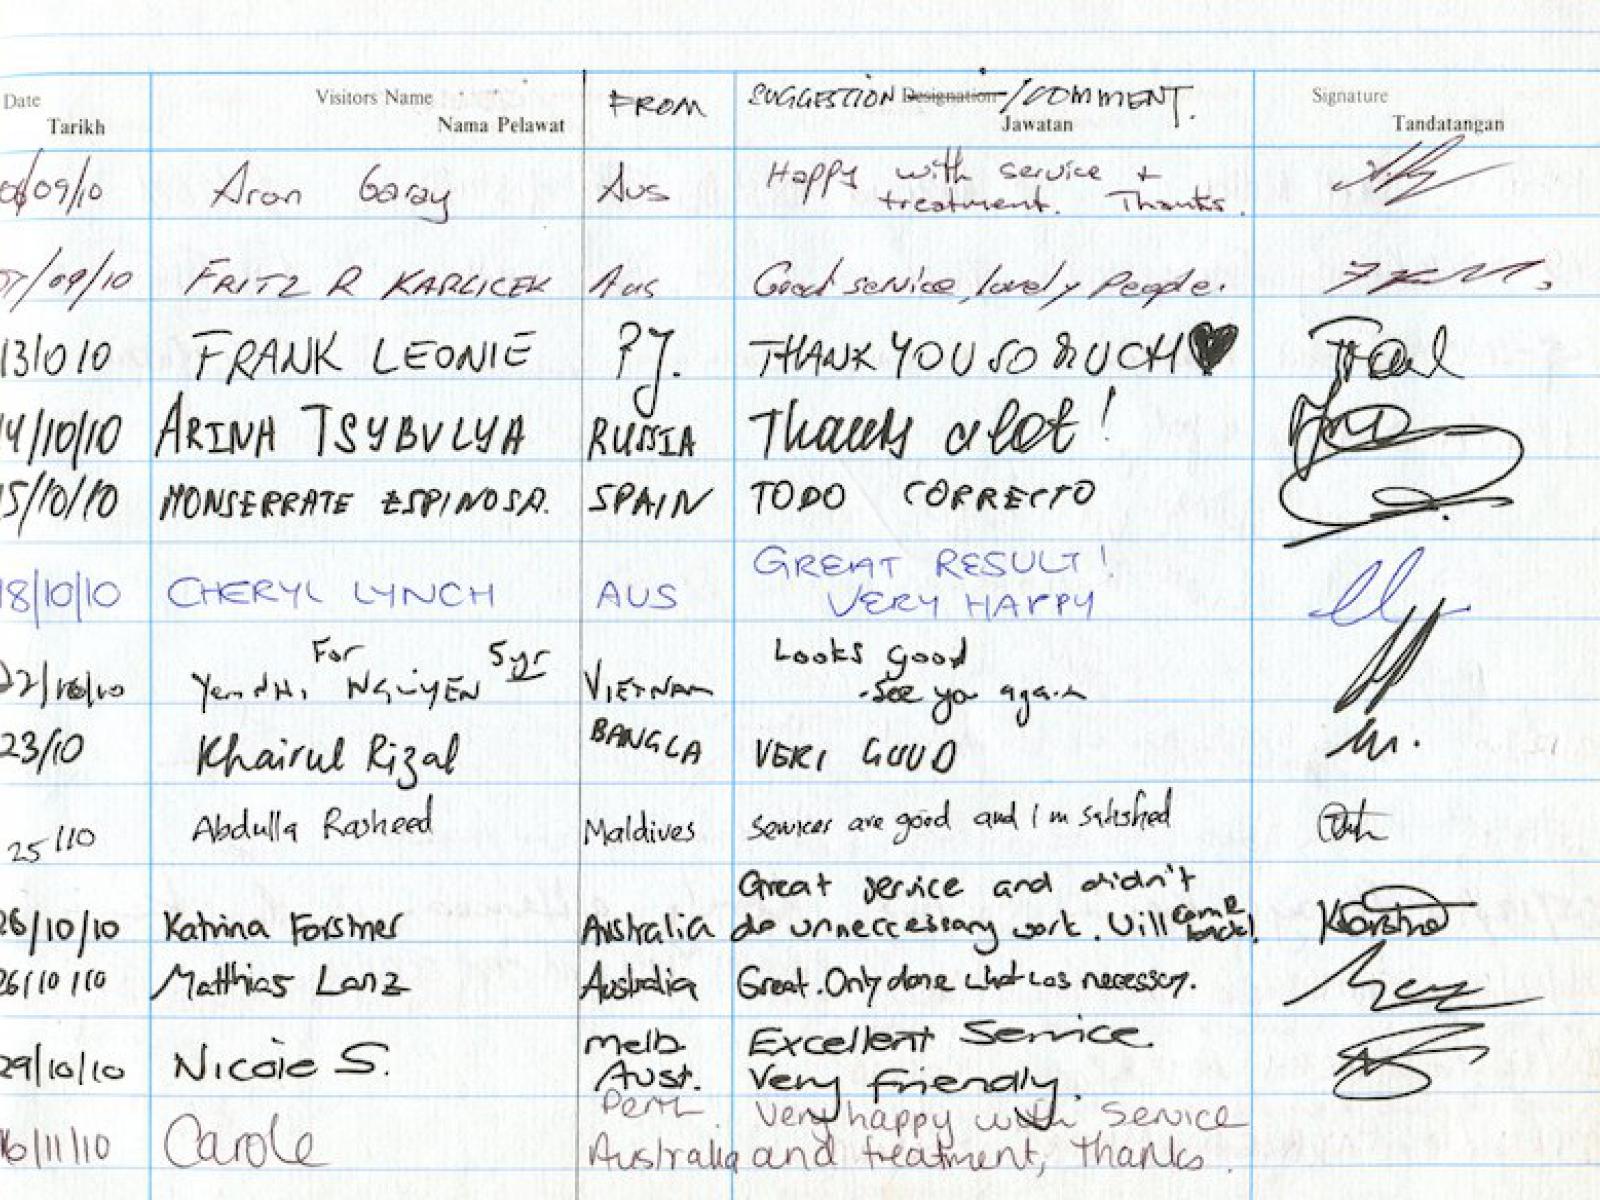 Date Visitors Name FROM SUGGESTION Designation /COMMENT. Signature
Tarikh Nama Pelawat Jawatan Tandatangan
09/10 Aron Garay Aus Happy with service +
treatment. Thanks.
/09/10 FRITZ R KARLICEK Aus Good service, lovely people.
13/10 10 FRANK LEONIE PJ. THANK YOU SO MUCH♥
14/10/10 ARINA TSYBULYA RUSSIA Thanks a lot!
15/10/10 MONSERRATE ESPINOSA. SPAIN TODO CORRECTO
GREAT RESULT!
18/10/10 CHERYL LYNCH AUS VERY HAPPY
For 5yr Looks good
22/10/10 NGUYEN VIETNAM - See you again
23/10 Khairul Rizal BANGLA VERI GUUD
25/10 Abdulla Rasheed Maldives Services are good and I'm satisfied
Great service and didn't
26/10/10 Katrina Forstner Australia do unneccessary work. Will come back!
26/10/10 Matthias Lanz Australia Great. Only done what was necessary.
Melb Excellent Service.
29/10/10 Nicole S. Aust. Very Friendly.
Perth Very happy with service
16/11/10 Carole Australia and treatment, thanks.